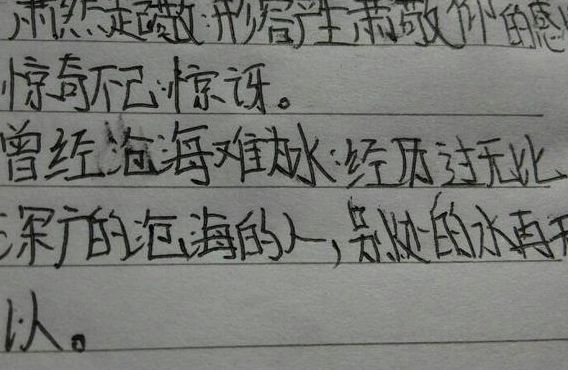 肃然起敬:形容产生肃敬仰的感
惊奇不已:惊讶。
曾经沧海难为水:经历过无比
深广的沧海的人,别处的水再
以。